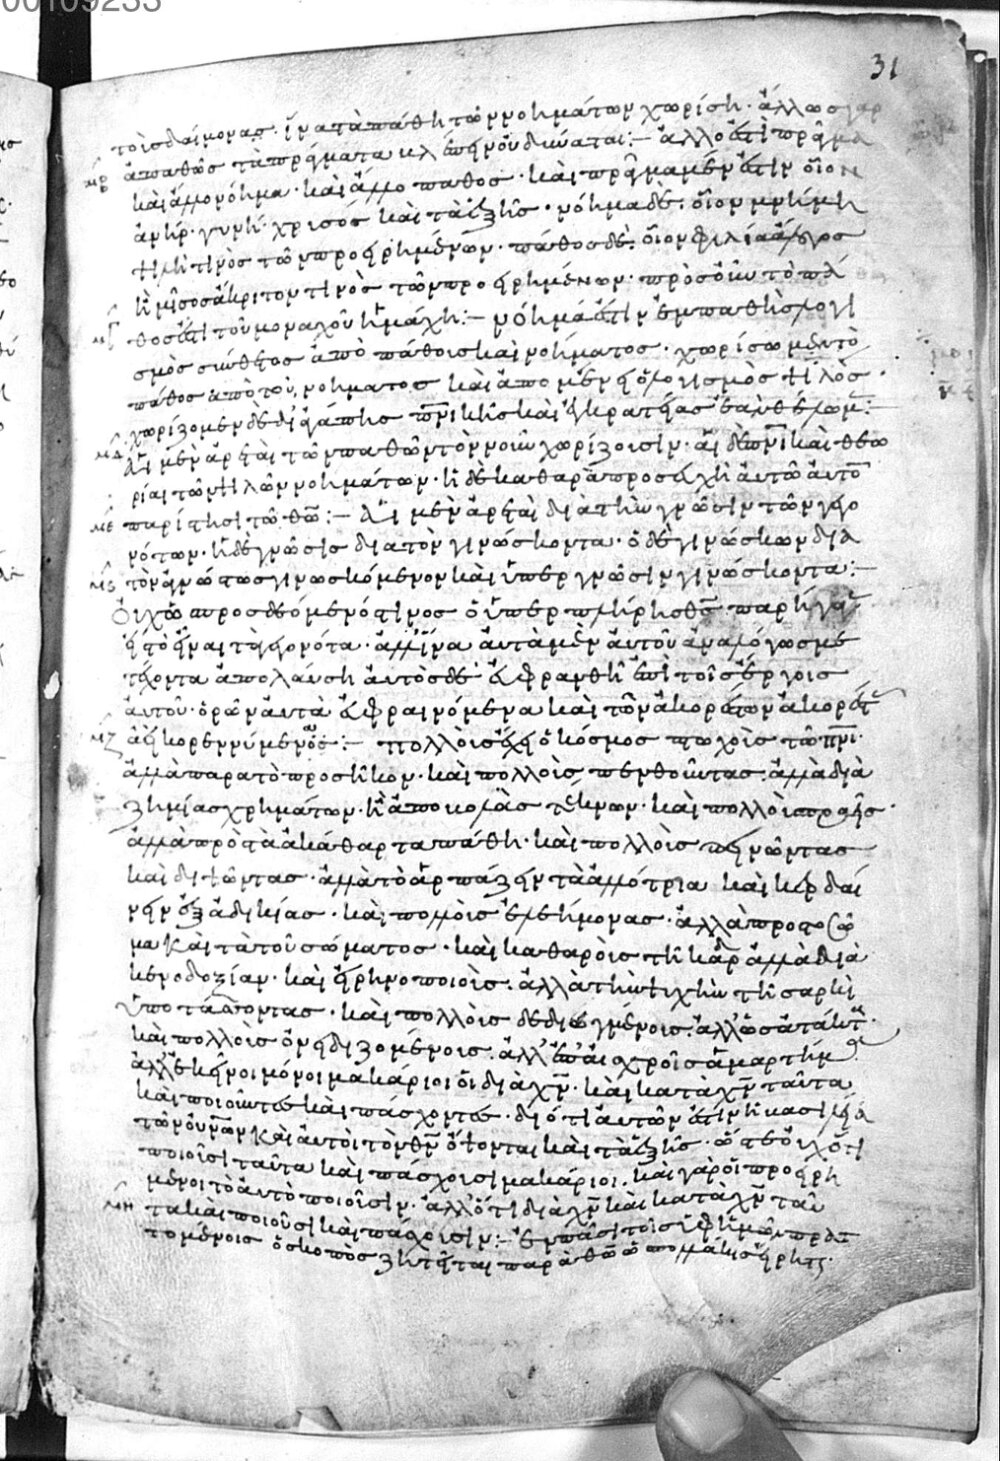 τοὺς δαίμονας· ἵνα τὰ πάθη τῶν νοημάτων χωρίση· ἄλλως γαρ
μβ ἀπαθῶς τὰ πράγματα βλέπειν οὐ δύναται:– ἄλλο ἐστὶ πρᾶγμα
καὶ ἄλλο νόημα· καὶ ἄλλο παθος· καὶ πρᾶγμα μέν ἐστιν οἷον
ἀνήρ· γυνή· χρυσός καὶ τὰ ἑξῆς· νόημα δέ· οἷον μνήμη
ψιλή τινος τῶν προειρημένων· πάθος δὲ· οἷον φιλία ἄλογος
ἢ μῖσος ἄκριτον τινὸς τῶν προειρημένων· πρὸς οὖν τὸ πά
μγ θος ἐστὶ τοῦ μοναχοῦ ἡ μάχη:– νόημά ἐστιν ἐμπαθὴς λογι
σμὸς σύνθετος ἀπὸ πάθους καὶ νοήματος· χωρίσωμεν τὸ
πάθος ἀπὸ τοῦ νοηματος καὶ ἀπομένει ὁ λογισμὸς ψιλὸς·
χωρίζομεν δὲ δι ἀγάπης πνικῆς καὶ ἐγκρατείας ἐὰν θέλωμεν:–
μδ Αἱ μὲν ἀρεταὶ τῶν παθῶν τὸν νοῦν χωρίζουσιν· αἱ δὲ πνικαὶ θεω
ρίαι τῶν ψιλῶν νοημάτων· ἡ δὲ καθαρὰ προσευχὴ αὐτῶ αὐτὸν
με παρίστησι τῶ θῶ:– Αἱ μὲν ἀρεταὶ διὰ τὴν γνῶσιν τῶν γεγο
νότων· ἡ δὲ γνῶσις δια τὸν γινώσκοντα· ὁ δὲ γινώσκων διὰ
μς τὸν ἀγνώστως γινωσκόμενον καὶ ὑπερ γνῶσιν γινώσκοντα:–
Οὐχ ὡς προσδεόμενός τινος ὁ ὑπερπλήρης θς παρήγαγεν
εἰς τὸ εἶναι τὰ γεγονότα· ἀλλ ἵνα αὐτὰ μὲν αὐτοῦ ἀναλόγως με
τέχοντα ἀπολαύση αὐτὸς δὲ εὐφρανθῆ ἐπὶ τοῖς ἔργοις
αὐτοῦ· ὁρῶν αὐτὰ εὐφραινόμενα καὶ τὸν ἀκόρεστον ἀκορέστως
μζ ἀεὶ κορεννύμενα:– πολλοὺς ἔχει ὁ κόσμος πτωχοὺς τῶ πνι·
ἀλλὰ παρα τὸ προσῆκον· καὶ πολλοὺς πενθοῦντας ἀλλὰ διὰ
ζημίας χρημάτων· ἢ ἀποβολὰς τέκνων· καὶ πολλοὺς πραεῖς·
ἀλλὰ πρὸς τὰ ἀκάθαρτα πάθη· καὶ πολλοὺς πεινῶντας
καὶ διψῶντας· ἀλλὰ τὸ ἁρπάζειν τὰ ἀλλότρια καὶ κερδαί
νειν ἐξ ἀδικίας· καὶ πολλοὺς ἐλεήμονας· ἀλλὰ προς το σῶ
μα καὶ τὰ τοῦ σώματος· καὶ καθαροὺς τῆ καρδία ἀλλὰ διὰ
κενοδοξίαν· καὶ εἰρηνοποιοὺς· ἀλλὰ τὴν ψυχὴν τῆ σαρκὶ
ὑποτάσσοντας· καὶ πολλοὺς δεδιωγμένους· ἀλλ ὡς ἀτάκτους·
καὶ πολλοὺς ὀνειδιζομένους· ἀλλ ἐπ αἰσχροῖς ἁμαρτήμασιν
ἀλλ ἐκεῖνοι μόνοι μακάριοι οἱ διὰ χν καὶ κατὰ χν ταῦτα
καὶ ποιοῦντες καὶ πάσχοντες· διότι αὐτῶν ἐστιν ἡ βασιλεία
τῶν οὐνῶν καὶ αὐτοὶ τὸν θν ὄψονται καὶ τὰ ἑξῆς· ὥστε οὐχ ὅτι
ποιοῦσι ταῦτα καὶ πάσχουσι μακάριοι· καὶ γὰρ οἱ προειρη
μένοι τὸ αὐτὸ ποιοῦσιν· ἀλλ ὅτι διὰ χν καὶ κατὰ χν ταῦ
μη τα καὶ ποιοῦσι καὶ πάσχουσιν:– ἐν πᾶσι τοῖς ὑφ ἡμῶν πρατ
τομένοις ὁ σκοπὸς ζητεῖται παρὰ θῶ ὡς πολλάκις εἴρητε·